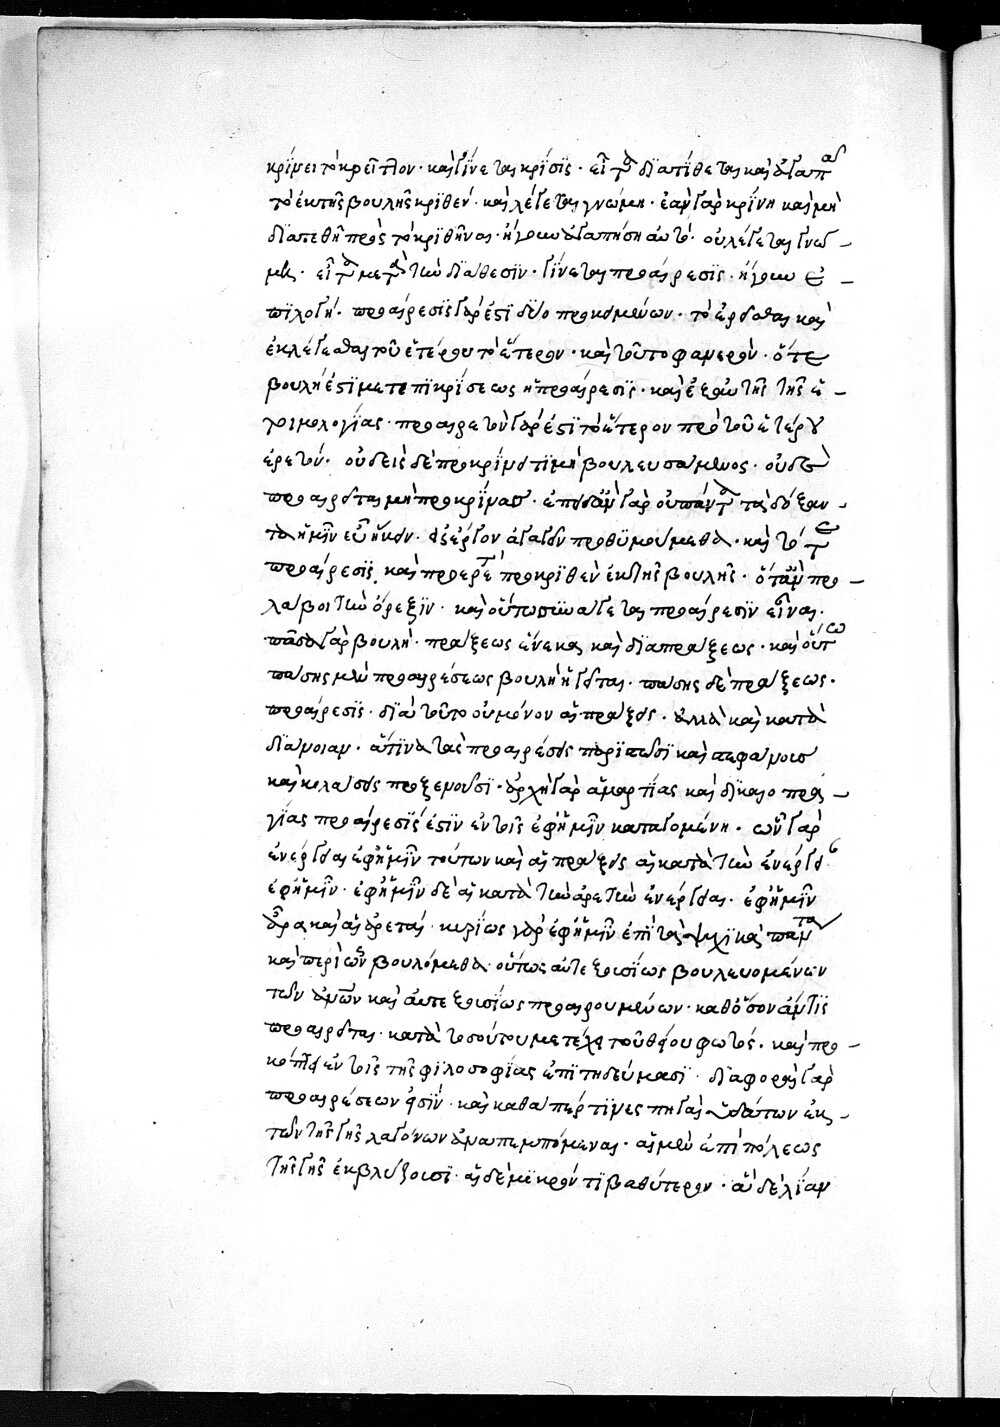 κρίνει τὸ κρεῖττον· καὶ γίνεται κρίσις· εἶτα διατίθεται καὶ ἀγαπᾶ
τὸ ἐκ τῆς βουλῆς κριθέν· καὶ λέγεται γνώμη· ἐὰν γὰρ κρίνη καὶ μὴ
διατεθῆ πρὸς τὸ κριθῆναι· ἤγουν ἀγαπήση αὐτό· οὐ λέγεται γνώ-
μη· εἶτα μετὰ τὴν διάθεσιν· γίνεται προαίρεσις· ἤγουν ἐ-
πιλογή· προαίρεσις γάρ ἐστι δύο προκειμένων· τὸ αἱρεῖσθαι καὶ
ἐκλέγεσθαι τοῦ ἑτέρου τὸ ἕτερον· καὶ τοῦτο φανερὸν· ὅτι
βουλή ἐστι μετ' ἐπικρίσεως ἡ προαίρεσις· καὶ ἐξ αὐτῆς τῆς ἐ-
τοιμολογίας· προαιρετὸν γάρ ἐστι τὸ ἕτερον πρὸ τοῦ ἑτέρου
αἱρετόν· οὐδεὶς δὲ προκρίνει τι μὴ βουλευσάμενος· οὐδὲ
προαιρεῖται μὴ προκρίνας· ἐπειδὰν γὰρ οὐ πάντα τὰ δόξαν-
τα ἡμῖν εὖ ἥκειν· εἰς ἔργον ἀγαγεῖν προθυμούμεθα· καὶ τότε
προαίρεσις, καὶ προαιρετὸ προκριθὲν ἐκ τῆς βουλῆς· ὅταν προ-
λάβοι τὴν ὄρεξιν· καὶ οὕτω συνάγεται προαίρεσιν εἶναι·
πᾶσα γὰρ βουλὴ· πράξεως ἕνεκα καὶ διὰ πράξεως· καὶ οὕτω
πάσης μὲν προαιρέσεως βουλὴ ἡγεῖται· πάσης δὲ πράξεως·
προαίρεσις· διὰ τοῦτο οὐ μόνον αἱ πράξεις· ἀλλὰ καὶ κατὰ
διάνοιαν· ἅτινα τὰς προαιρέσεις παριστῶσι καὶ στεφάνους
καὶ κολάσεις προξενοῦσι· ἀρχὴ γὰρ ἁμαρτίας καὶ δικαιοπρα-
γίας προαίρεσίς ἐστιν ἐν τοῖς ἐφ' ἡμῖν καταγομένη· ὧν γὰρ
ἐνέργειαι ἐφ' ἡμῖν τούτων καὶ αἱ πράξεις αἱ κατὰ τὴν ἐνέργει
ἐφ' ἡμῖν· ἐφ' ἡμῖν δὲ αἱ κατὰ τὴν ἀρετὴν ἐνέργειαι· ἐφ' ἡμῖν
ἆρα καὶ αἱ ἀρεταί· κυρίως γὰρ ἐφ' ἡμῖν ἐπὶ τὰς ψυχικὰς πάντα
καὶ περὶ ὧν βουλόμεθα· οὕτως αὐτεξουσίως βουλευομένων
τῶν ἀνθρώπων καὶ αὐτεξουσίως προαιρουμένων· καθόσον ἄν τις
προαιρεῖται· κατὰ τοσοῦτον μετέχει τοῦ θείου φωτός· καὶ προ-
κόπτει ἐν τοῖς τῆς φιλοσοφίας ἐπιτηδεύμασι· διαφοραὶ γὰρ
προαιρέσεων εἰσὶν· καὶ καθάπερ τινὲς πηγαὶ ὑδάτων ἐκ-
τῶν τῆς γῆς λαγόνων ἀναπεμπόμεναι· αἱ μὲν ἐπιπόλεως
τῆς γῆς ἐκβλύζουσι· αἱ δὲ μικρόν τι βαθύτερον· αἱ δὲ λίαν